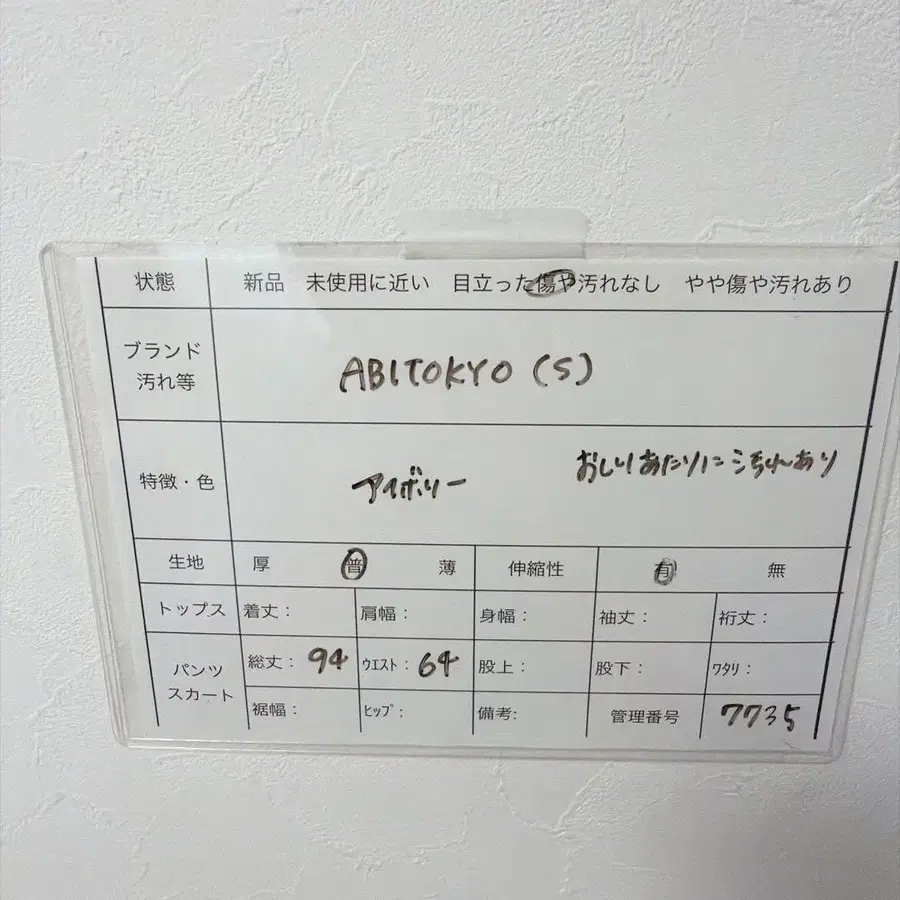 状態 新品 未使用に近い 目立った傷や汚れなし やや傷や汚れあり
ブランド
汚れ等
ABITOKYO (S)
特徴・色
アイボリー
おしりあたりに汚れあり
生地 厚 普 薄 伸縮性 有 無
トップス 着丈: 肩幅: 身幅: 袖丈: 裄丈:
パンツ
スカート
総丈: 94 ウエスト: 64 股上: 股下: ワタリ:
裾幅: ヒップ: 備考: 管理番号 7735